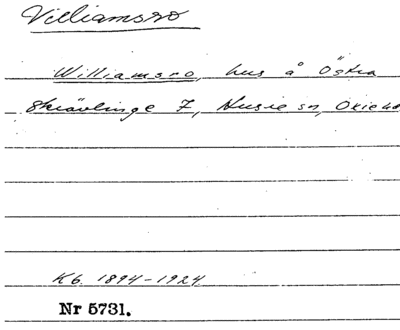 Villiamsro
Williamsro, hus å Östra
Skrävlinge 7, Husie sn, Oxie hd
Kb. 1894-1924
Nr 5731.